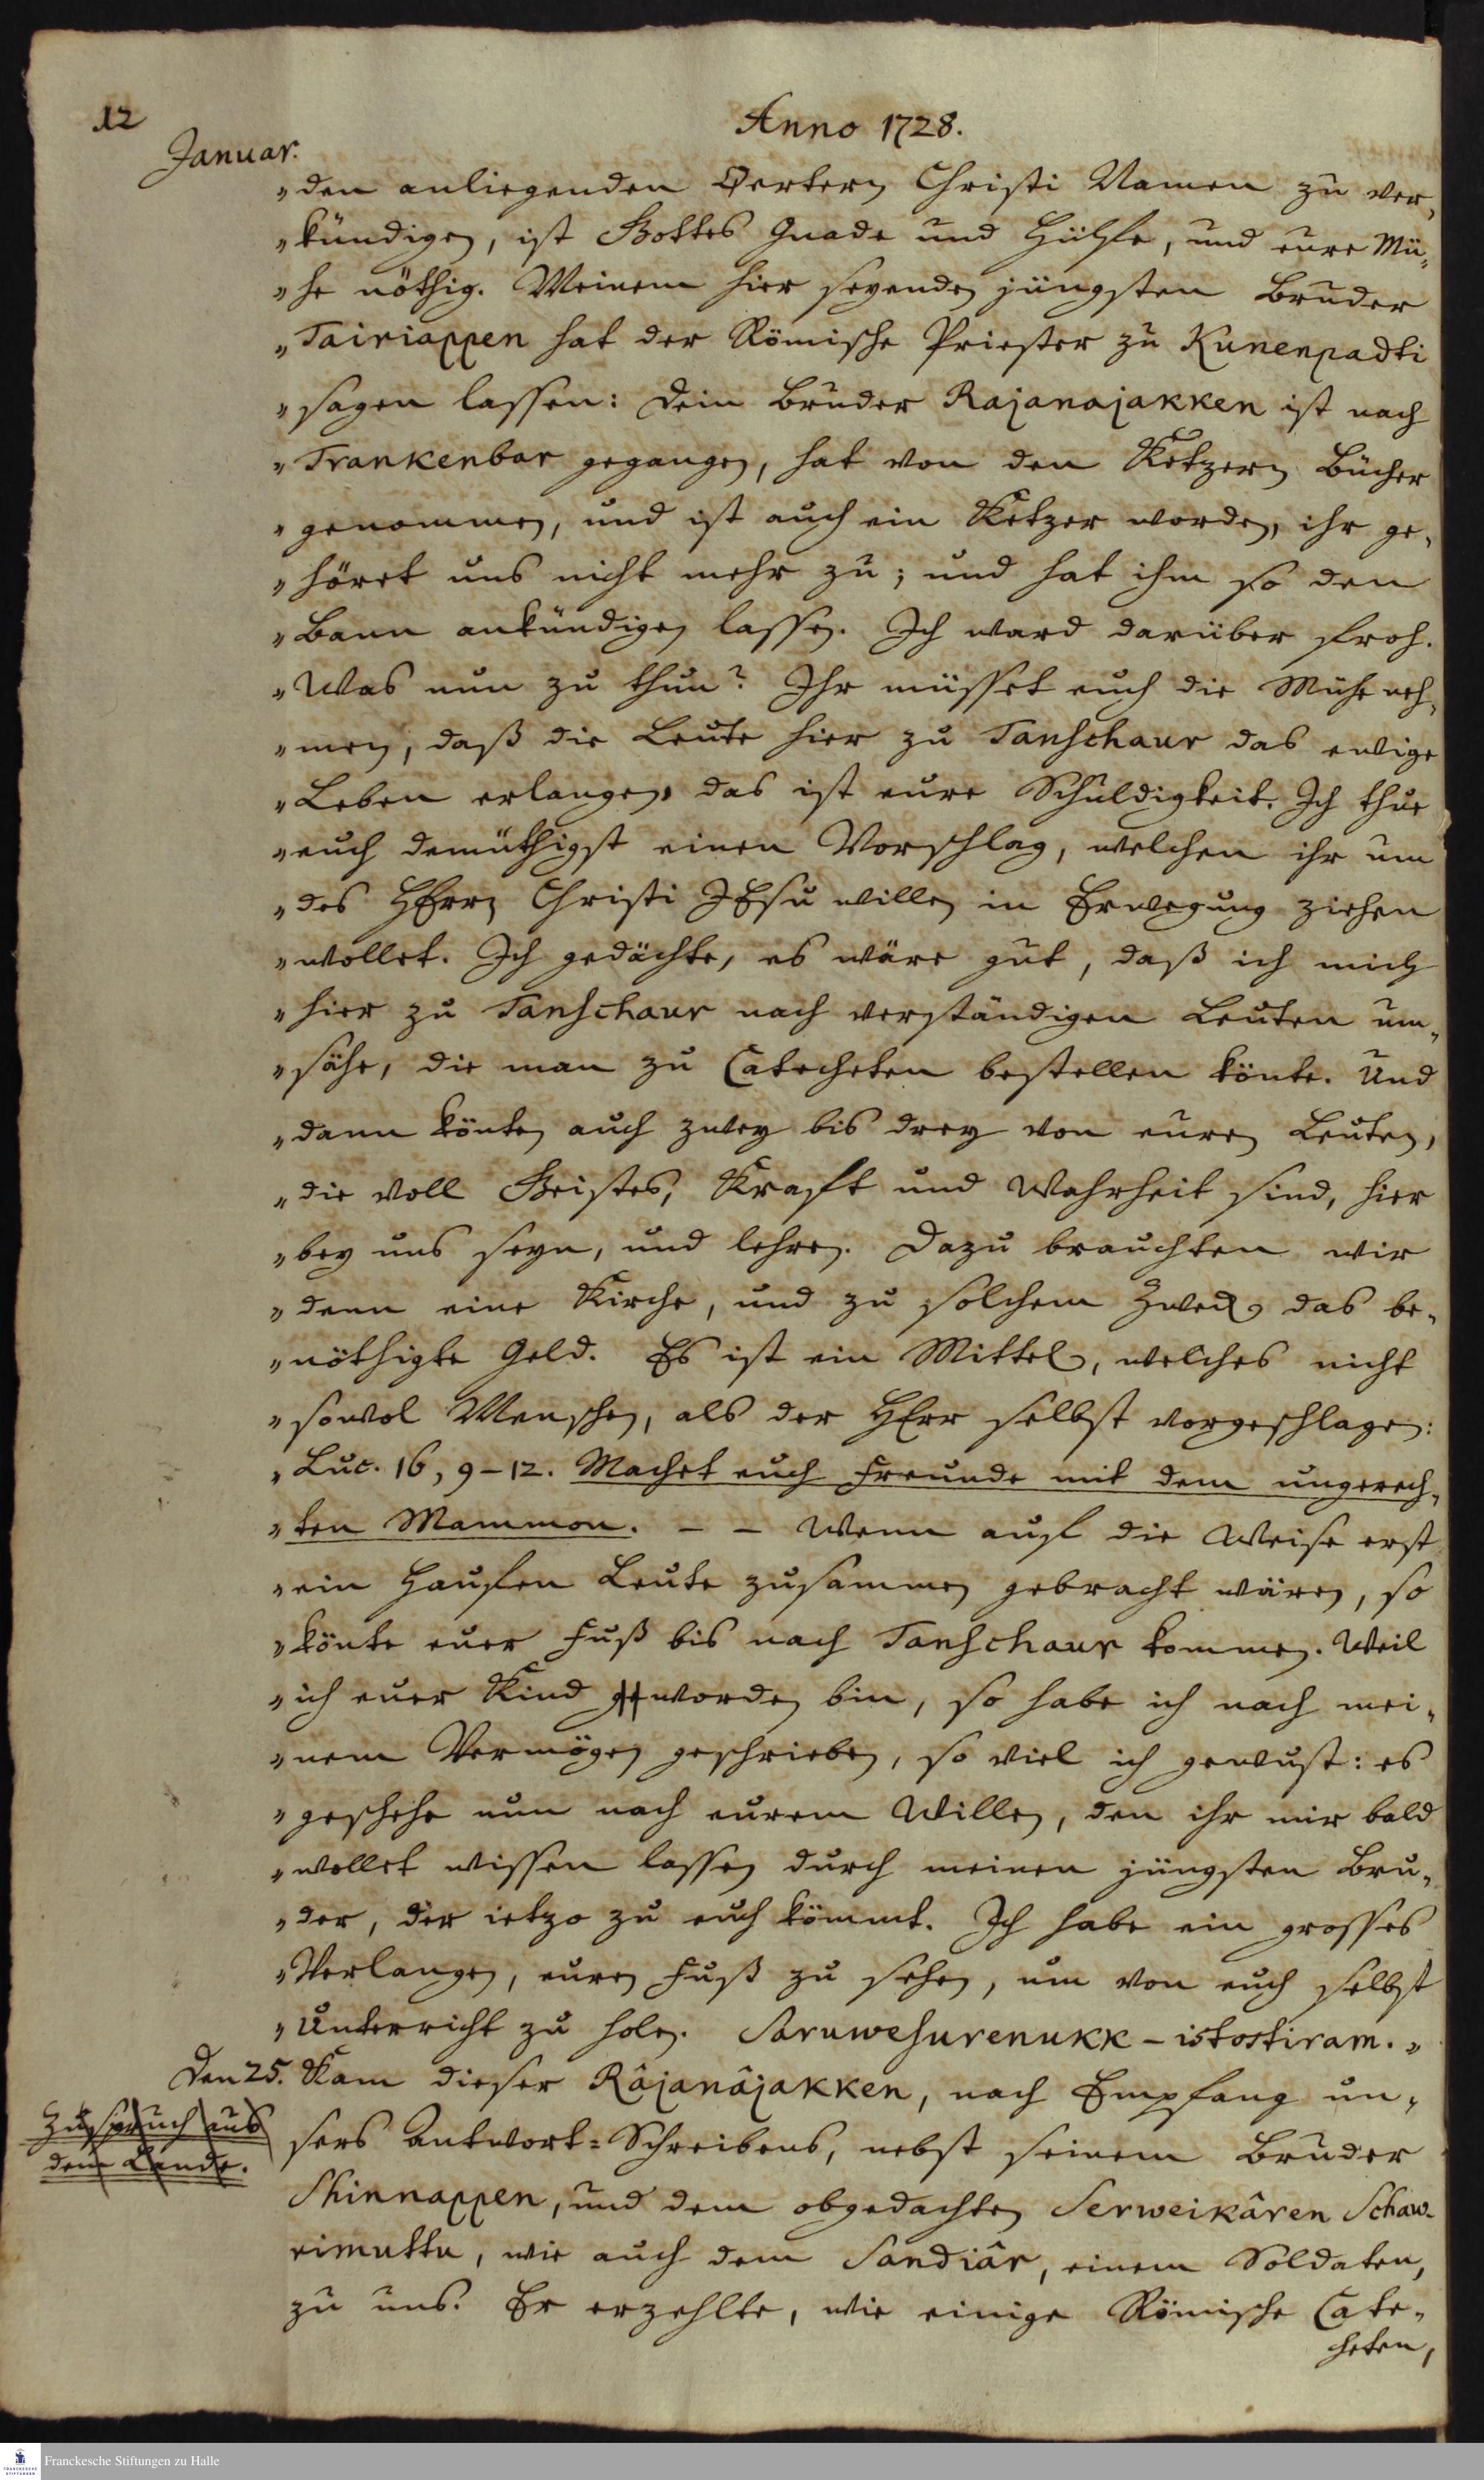 12
Anno 1728.
Januar.
„den anliegenden Oertern Christi Namen zu ver„
„kündigen, ist Gottes Gnade und Hülfe, und eure Mü„
„he nöthig. Meinem hier seyenden jüngsten Bruder
„Tairiappen hat der Römische Priester zu Kunenpadti
„sagen lassen: dein Bruder Rajanajakken ist nach
„Trankenbar gegangen, hat von den Ketzern Bücher
„genommen, und ist auch ein Ketzer worden, ihr ge„
„höret uns nicht mehr zu; und hat ihm so den
„Bann ankündigen lassen. Ich ward darüber froh.
„Was nun zu thun? Ihr müsset euch die Mühe neh„
„men, daß die Leute hier zu Tanschaur das ewige
„Leben erlangen, das ist eure Schuldigkeit. Ich thue
„euch demüthigst einen Vorschlag, welchen ihr um
„des HErrn Christi JEsu willen in Erwegung ziehen
„wollet. Ich gedächte, es wäre gut, daß ich mich
„hier zu Tanschaur nach verständigen Leuten um„
„sähe, die man zu Catecheten bestellen könte. Und
„dann könten auch zwey bis drey von euren Leuten,
„die voll Geistes, Kraft und Wahrheit sind, hier
„bey uns seyn, und lehren. Dazu brauchten wir
„denn eine Kirche, und zu solchem Zweck das be„
„nöthigte Geld. Es ist ein Mittel, welches nicht
„sowol Menschen, als der HErr selbst vorgeschlagen:
„Luc. 16, 9-12. Machet euch Freunde mit dem ungerech„
„ten Mammon. - - Wenn auf die Weise erst
„ein Haufen Leute zusammen gebracht wären, so
„könte euer Fuß bis nach Tanschaur kommen. Weil
„ich euer Kind worden bin, so habe ich nach mei„
„nem Vermögen geschrieben, so viel ich gewust: es
„geschehe nun nach eurem Willen, den ihr mir bald
„wollet wissen lassen durch meinen jüngsten Bru„
„der, der ietzo zu euch kömmt. Ich habe ein grosses
„Verlangen, euren Fuß zu sehen, um von euch selbst
„Unterricht zu holen. Saruwesurenukk-istostiram. „
Den 25. Kam dieser Râjanâjakken, nach Empfang un„
Zuspruch aus
dem Lande.
sers Antwort-Schreibens, nebst seinem Bruder
Shinnappen, und dem obgedachten Serweikâren Schaw-
rimuttu, wie auch dem Sandiâr, einem Soldaten,
zu uns. Er erzehlte, wie einige Römische Cate„
cheten,
Franckesche Stiftungen zu Halle